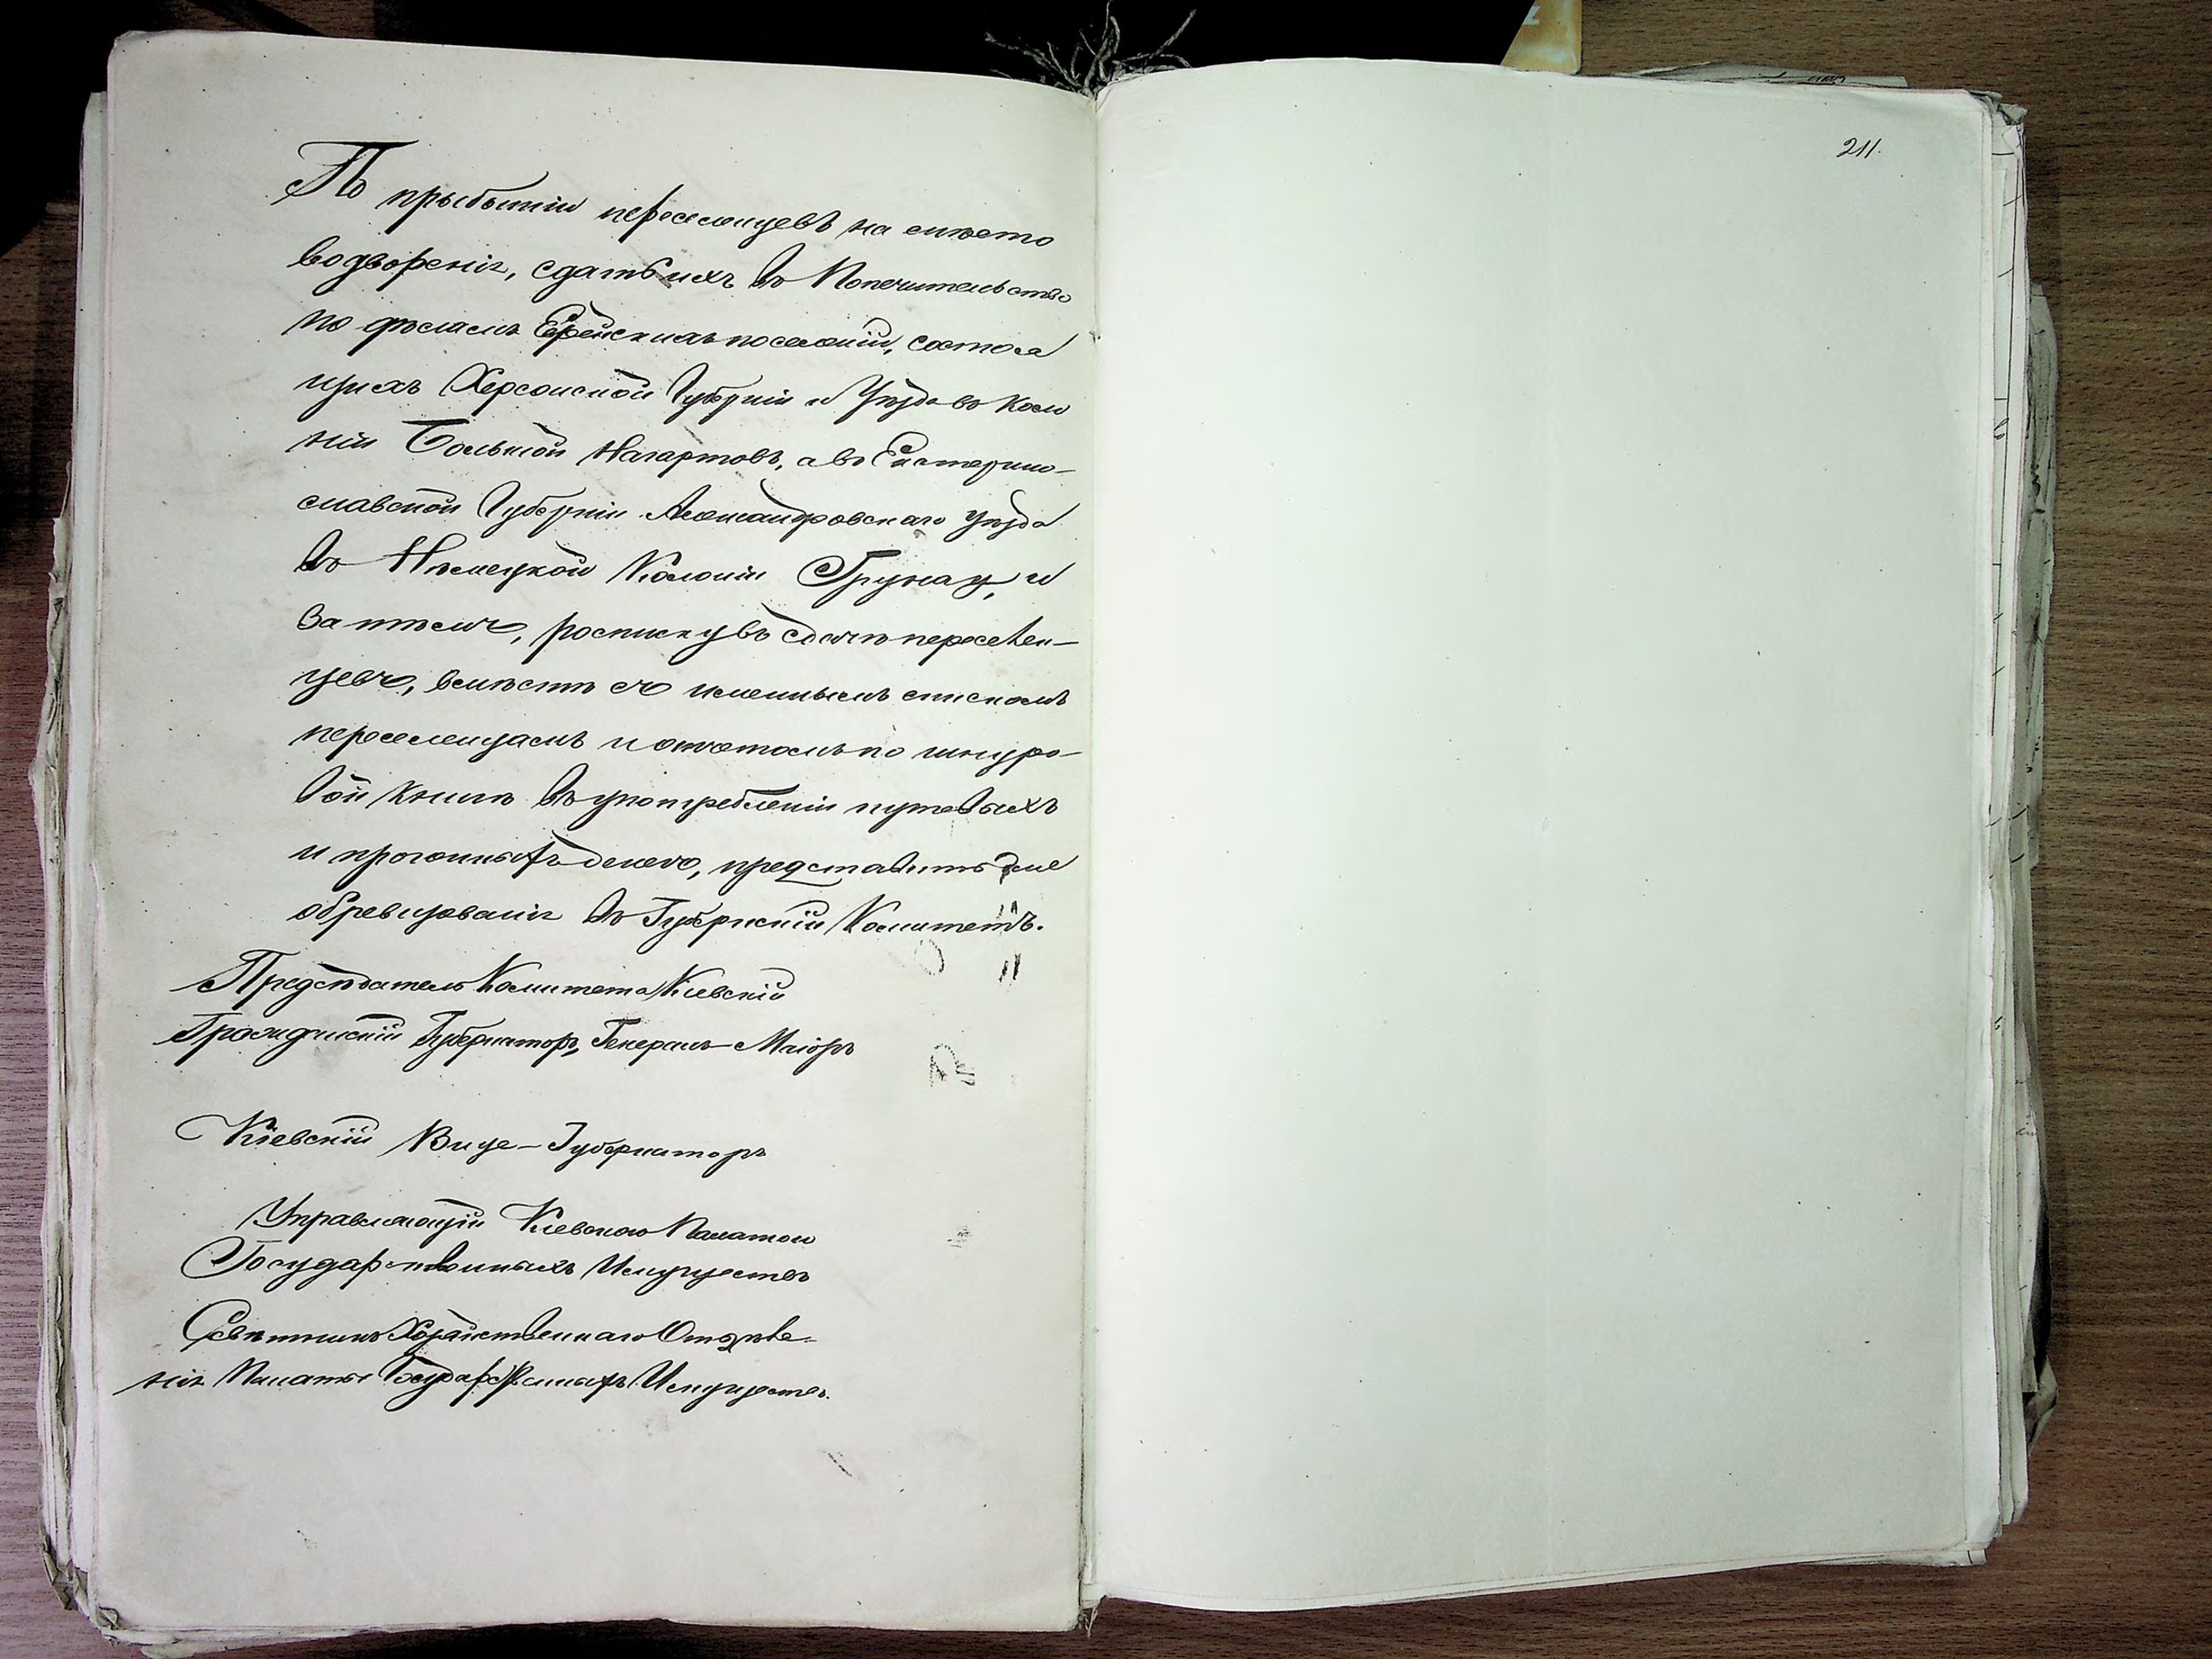 По прыбытіи переселенцевъ на место
водворенія, сдать ихъ въ Попечительство
по деламъ Еврейскихъ поселеній, состоя
щихъ Херсонской Губерніи и Уезда въ Коло
ніи Большой Нагартовъ, а въ Екатерино-
славской Губерніи Александровскаго уезда
въ Немецкой Колоніи Грунау, и
за темъ, росписку въ сдачѣ переселен-
цевъ, вместѣ съ именнымъ спискомъ
переселенцамъ и отчетомъ по шнуро-
вой книгѣ въ употребленіи путевыхъ
и прогонныхъ денегъ, представить для
обревизованія въ Губернскій Комитетъ.
Председатель Комитета Кіевскій
Гражданскій Губернаторъ, Генералъ-Маіоръ
Кіевскій Вице-Губернаторъ
Управляющій Кіевскою Палатою
Государственныхъ Имуществъ
Советникъ Хозяйственнаго Отделе-
нія Палаты Государственныхъ Имуществъ.
211.